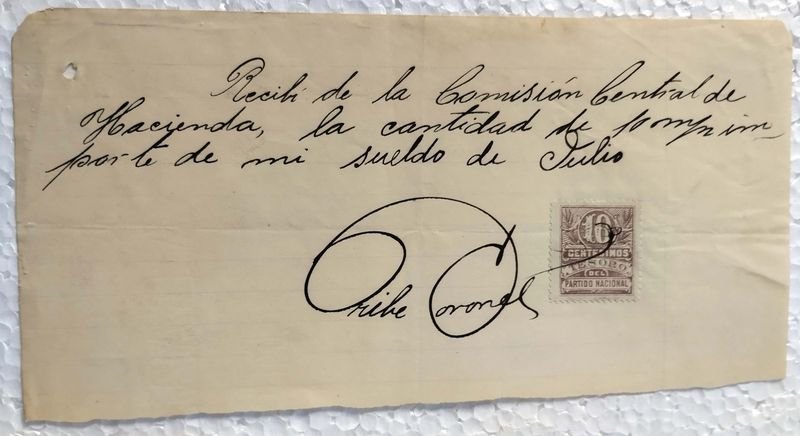 Recibí de la Comisión Central de
Hacienda, la cantidad de 10 m/n im
porte de mi sueldo de Julio
Oribe Coronel
10
CENTESIMOS
TESORO
DEL
PARTIDO NACIONAL